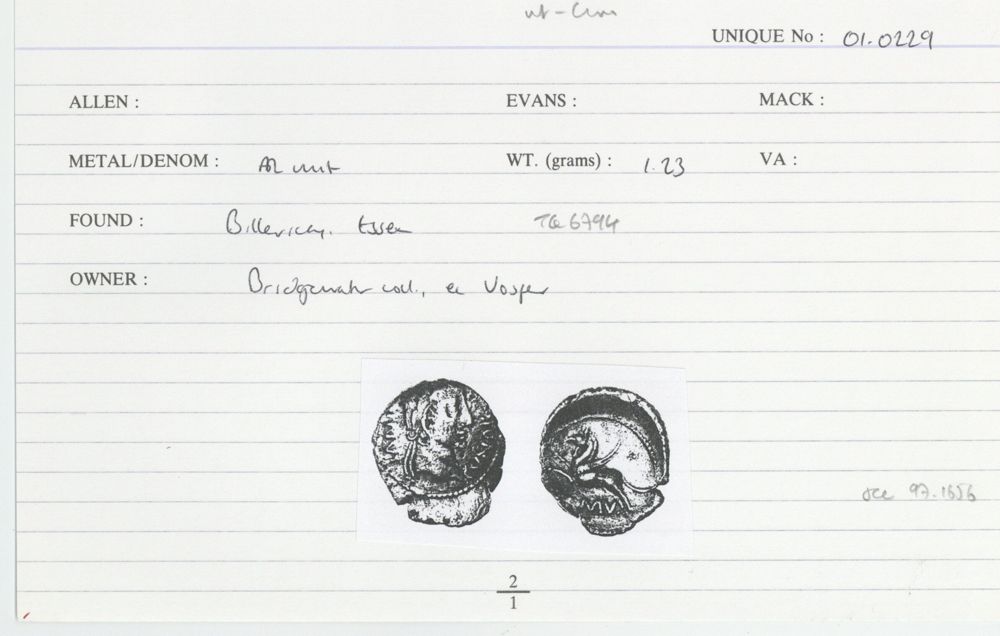 UNIQUE No : 01.0229
ALLEN : EVANS : MACK :
METAL/DENOM : AR unit WT. (grams) : 1.23 VA :
FOUND : Billericay, Essex TQ 6794
OWNER : Bridgewater coll., ex Vosper
MV
see 97.1656
2
1